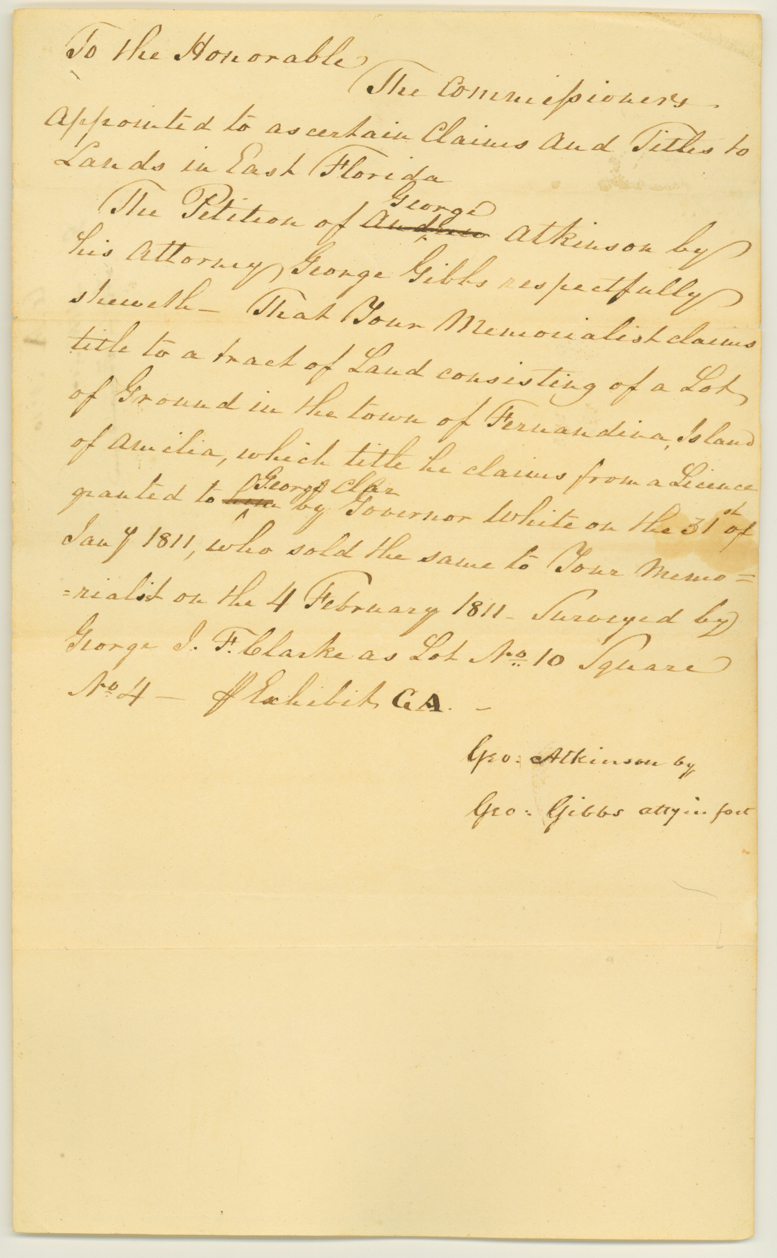 To the Honorable
The Commissioners
Appointed to ascertain Claims and Titles to
Lands in East Florida
George
The Petition of Andrew Atkinson by
his Attorney George Gibbs respectfully
sheweth - That Your Memorialist claims
title to a tract of Land consisting of a Lot
of Ground in the town of Fernandina, Island
of Amelia, which title he claims from a Licence
George Clar
granted to by Governor White on the 31st of
Jany 1811, who sold the same to Your Memo=
=rialist on the 4 February 1811 - Surveyed by
George J. F. Clarke as Lot No 10 Square
No 4 - Exhibit A. -
Geo: Atkinson by
Geo: Gibbs atty in fact